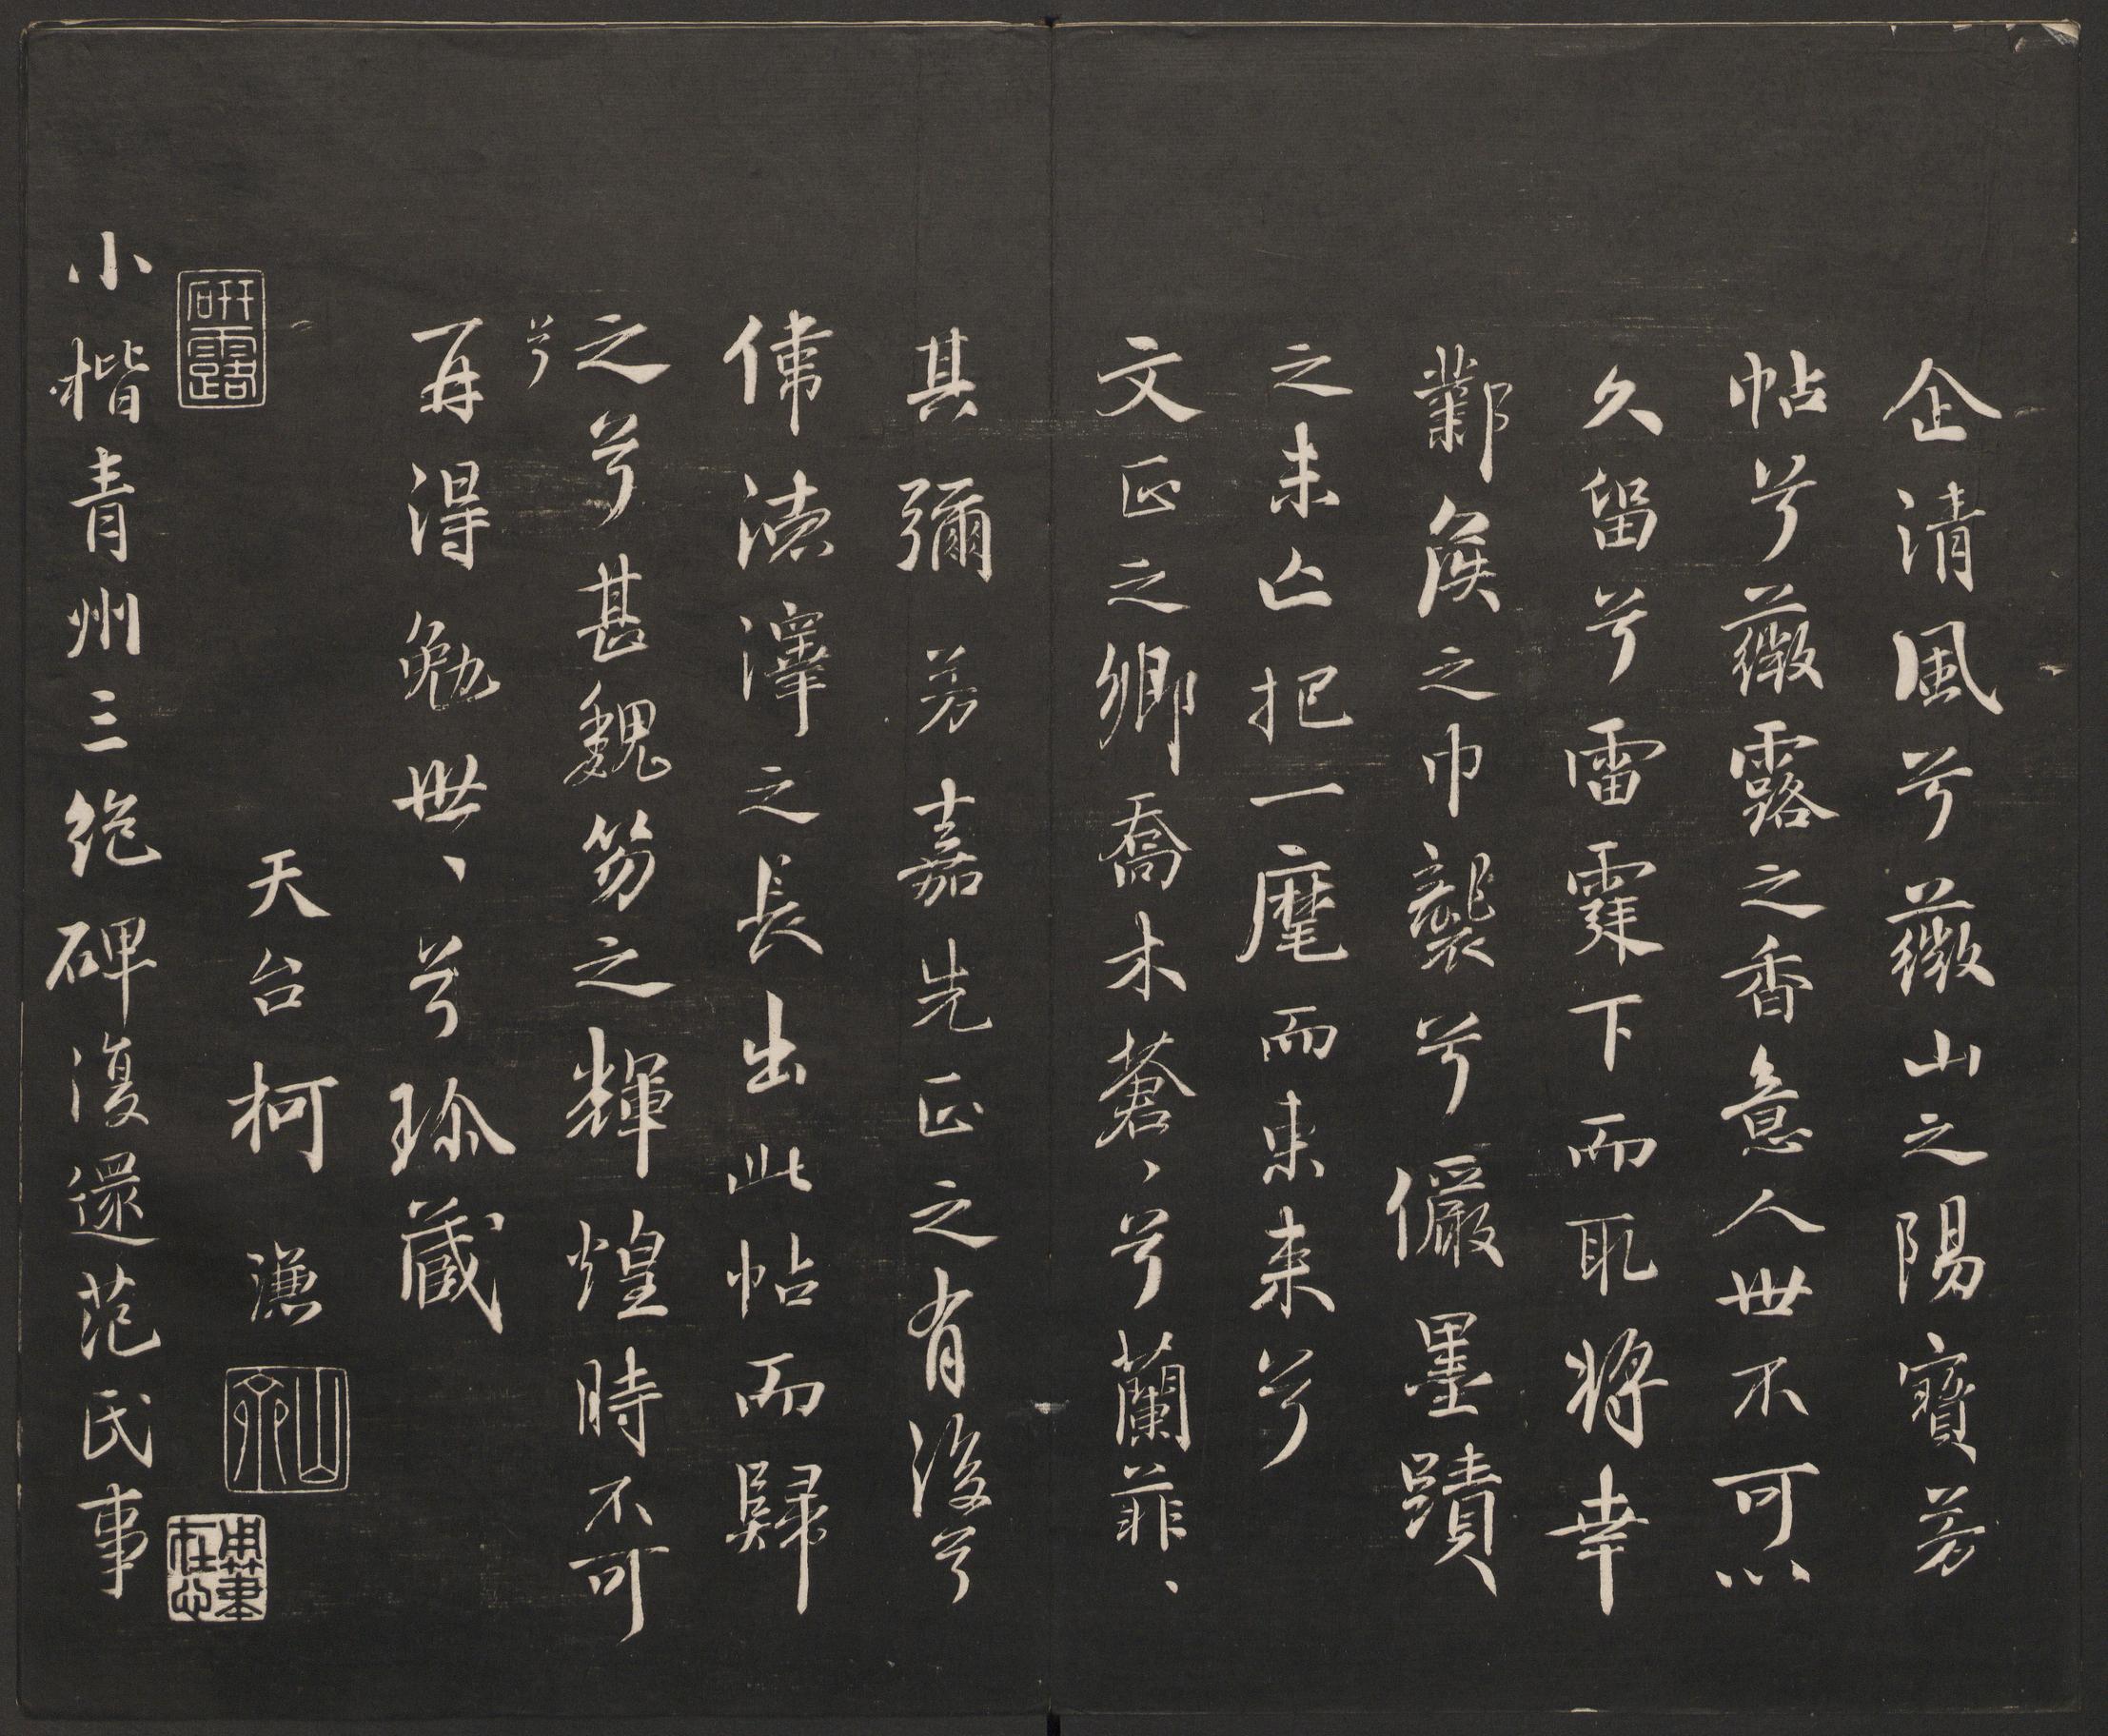 企清風兮薇山之陽寶芳
帖兮薇露之香意人世不可以
久留兮雷霆下而取將幸
鄴侯之巾襲兮儼墨蹟
之未亡把一麾而東來兮
文正之鄉喬木蒼、兮蘭菲、
其彌芳嘉先正之有後兮
偉德澤之長出此帖而歸
之兮甚魏笏之輝煌時不可
兮
再得勉世、兮珍藏
天台柯謙
研露
山齋
小楷青州三絕碑復還范氏事